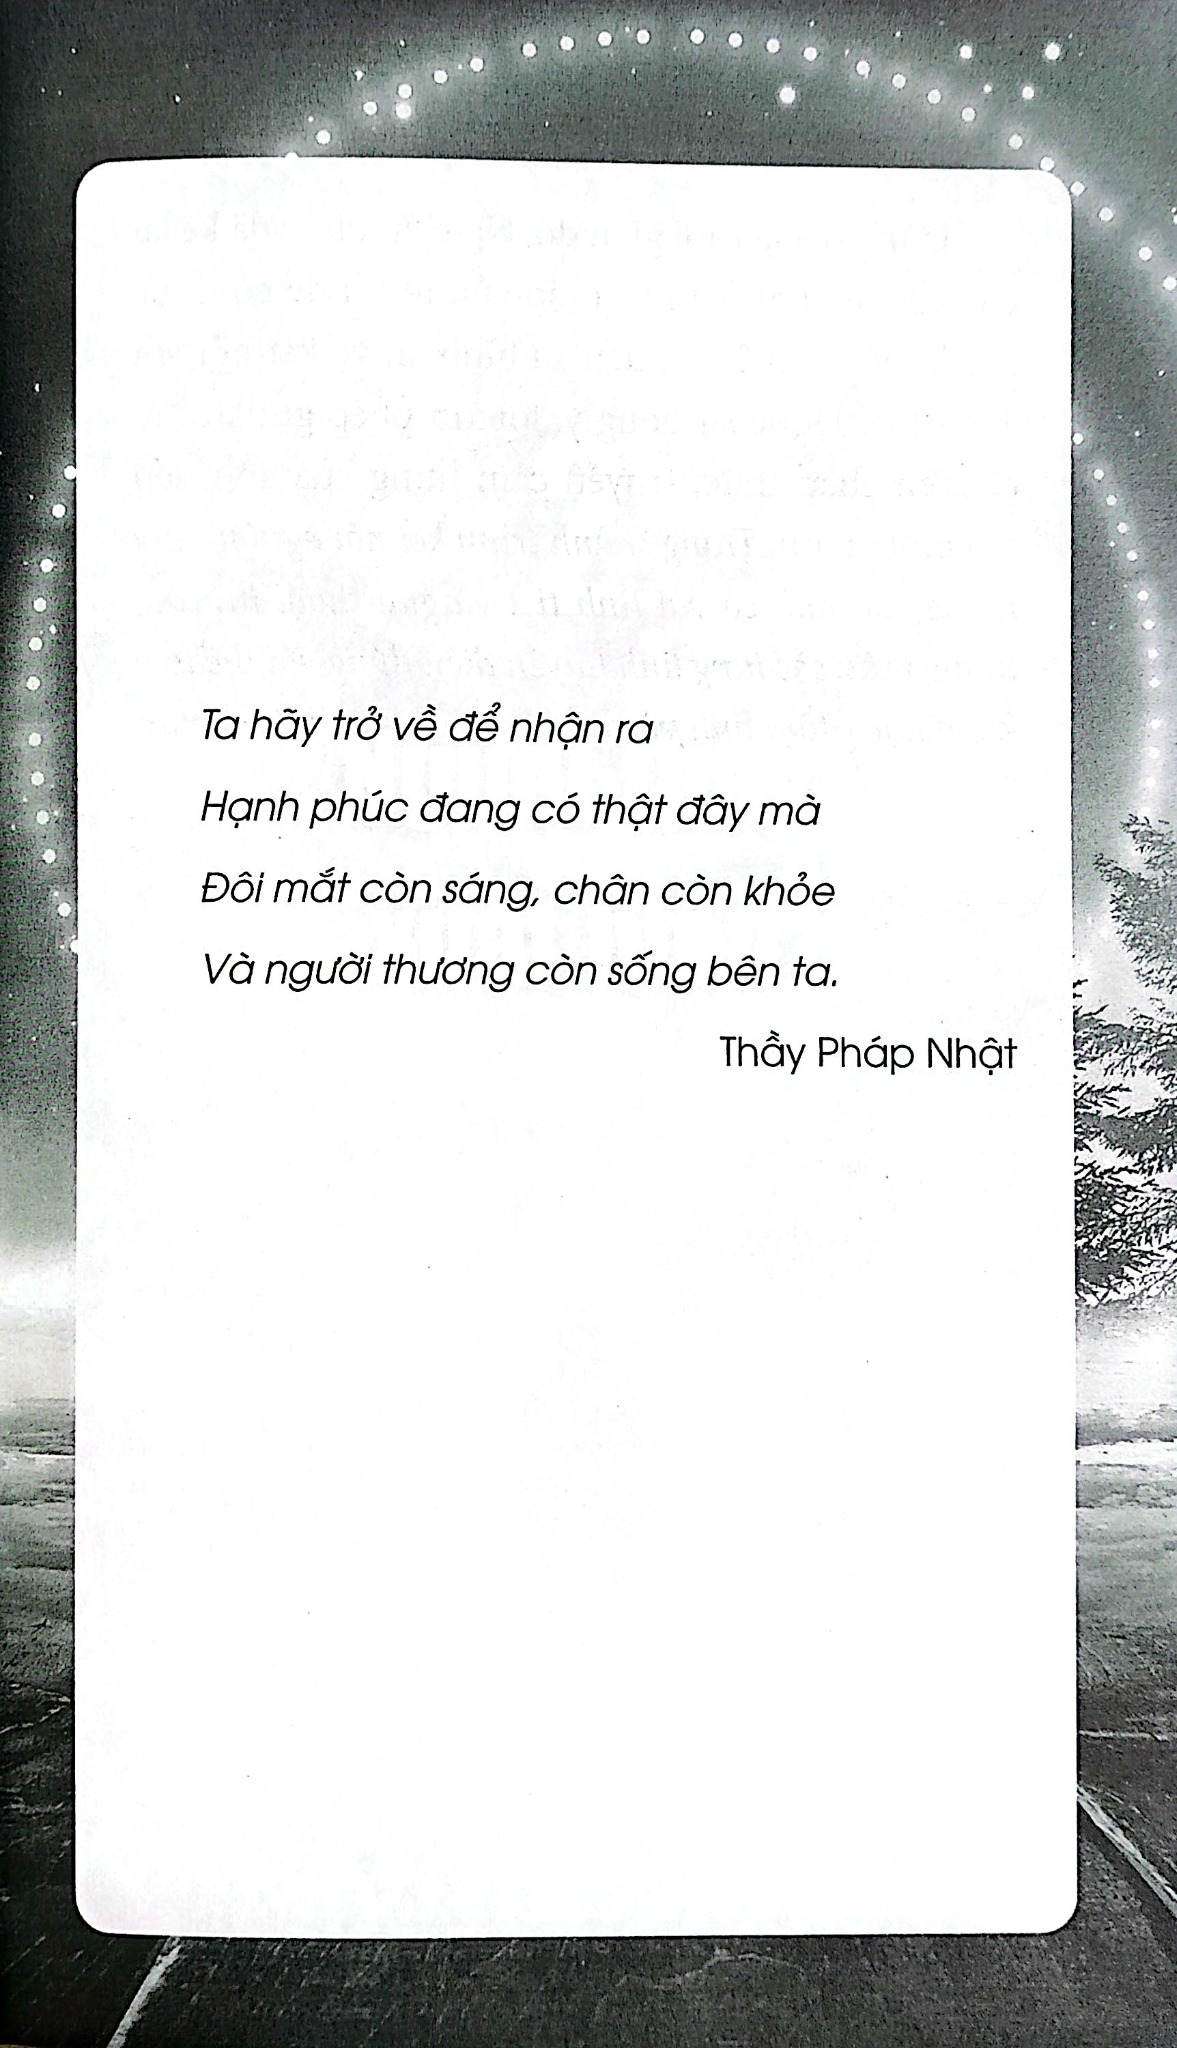 Ta hãy trở về để nhận ra
Hạnh phúc đang có thật đây mà
Đôi mắt còn sáng, chân còn khỏe
Và người thương còn sống bên ta.
Thầy Pháp Nhật